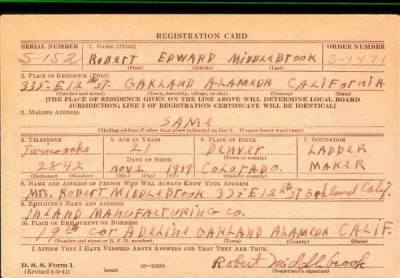 REGISTRATION CARD
SERIAL NUMBER 1. NAME (Print) ORDER NUMBER
S-152 ROBERT EDWARD MIDDLEBROOK S-1471
(First) (Middle) (Last)
2. PLACE OF RESIDENCE (Print)
335-E 12th ST. OAKLAND ALAMEDA CALIFORNIA
(Number and street) (Town, township, village, or city) (County) (State)
[THE PLACE OF RESIDENCE GIVEN ON THE LINE ABOVE WILL DETERMINE LOCAL BOARD
JURISDICTION; LINE 2 OF REGISTRATION CERTIFICATE WILL BE IDENTICAL]
3. MAILING ADDRESS
SAME
(Mailing address if other than place indicated on line 2. If same insert word same)
4. TELEPHONE 5. AGE IN YEARS 6. PLACE OF BIRTH 7. OCCUPATION
21 DENVER LADDER
DATE OF BIRTH
2842 NOV 2 1919 COLORADO. MAKER
(Exchange) (Number) (Mo.) (Day) (Yr.) (State or country)
8. NAME AND ADDRESS OF PERSON WHO WILL ALWAYS KNOW YOUR ADDRESS
MRS. ROBERT MIDDLEBROOK 335 E 12th ST Oakland Calif.
9. EMPLOYER'S NAME AND ADDRESS
INLAND MANUFACTURING CO.
10. PLACE OF EMPLOYMENT OR BUSINESS
19th COR ADELINE OAKLAND ALAMEDA CALIF.
(Number and street or R. F. D. number) (Town) (County) (State)
I AFFIRM THAT I HAVE VERIFIED ABOVE ANSWERS AND THAT THEY ARE TRUE.
D. S. S. Form 1 Robert Middlebrook
(Revised 6-9-41) (Registrant's signature)